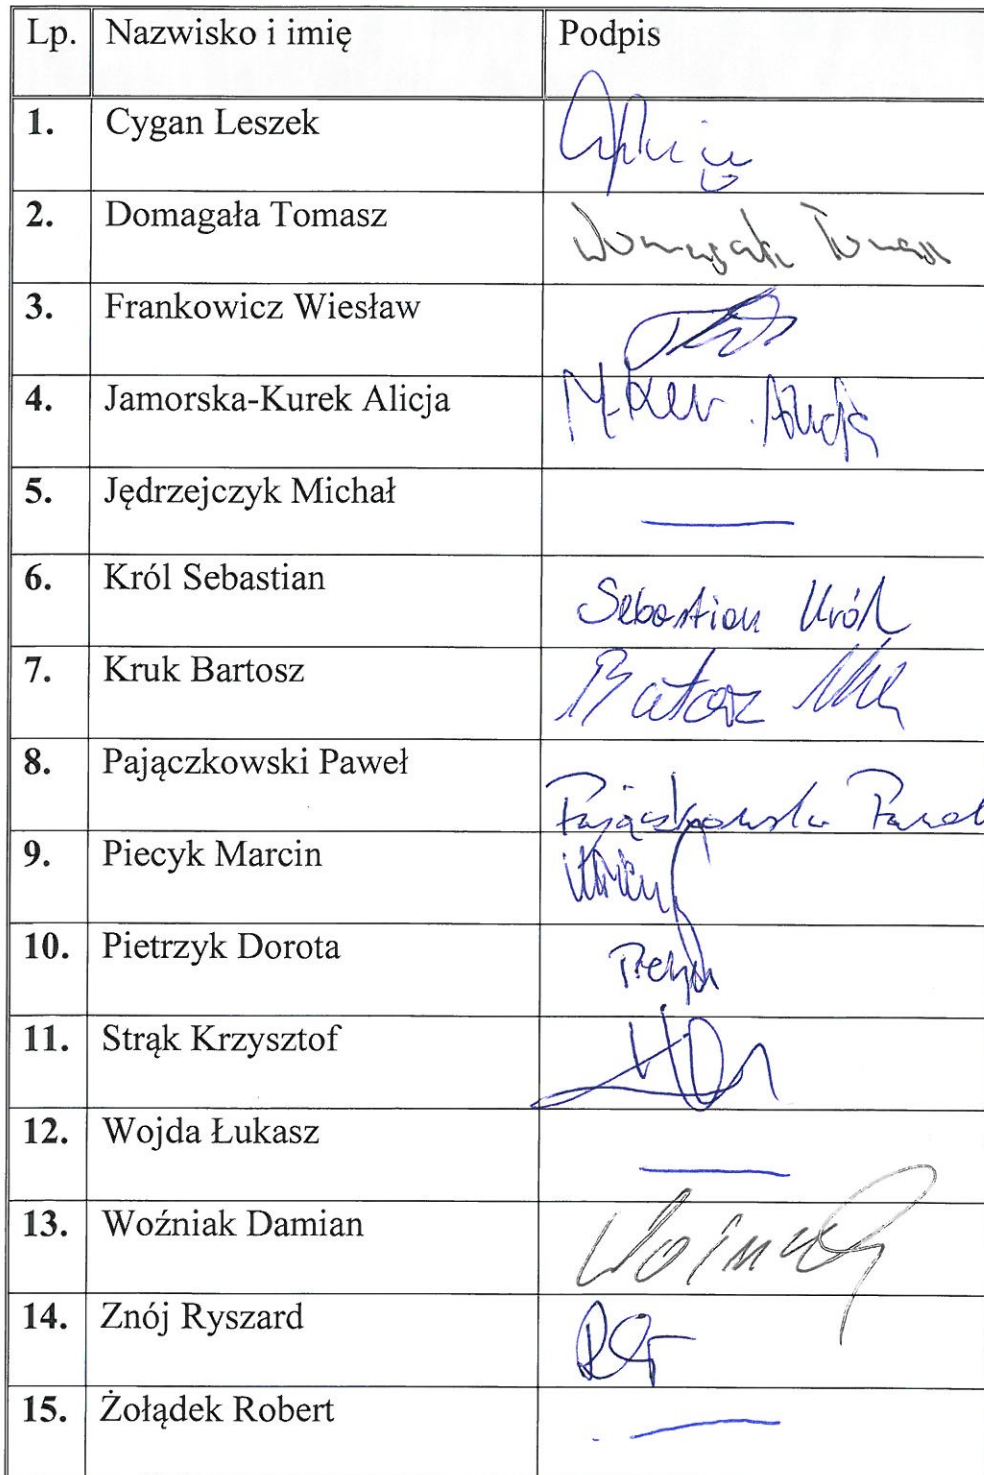 Lp. Nazwisko i imię Podpis
1. Cygan Leszek
2. Domagała Tomasz Domagała Tomasz
3. Frankowicz Wiesław
4. Jamorska-Kurek Alicja Alicja
5. Jędrzejczyk Michał —
6. Król Sebastian Sebastian Król
7. Kruk Bartosz Bartosz
8. Pajączkowski Paweł Pajączkowski Paweł
9. Piecyk Marcin
10. Pietrzyk Dorota
11. Strąk Krzysztof
12. Wojda Łukasz —
13. Woźniak Damian
14. Znój Ryszard
15. Żołądek Robert —